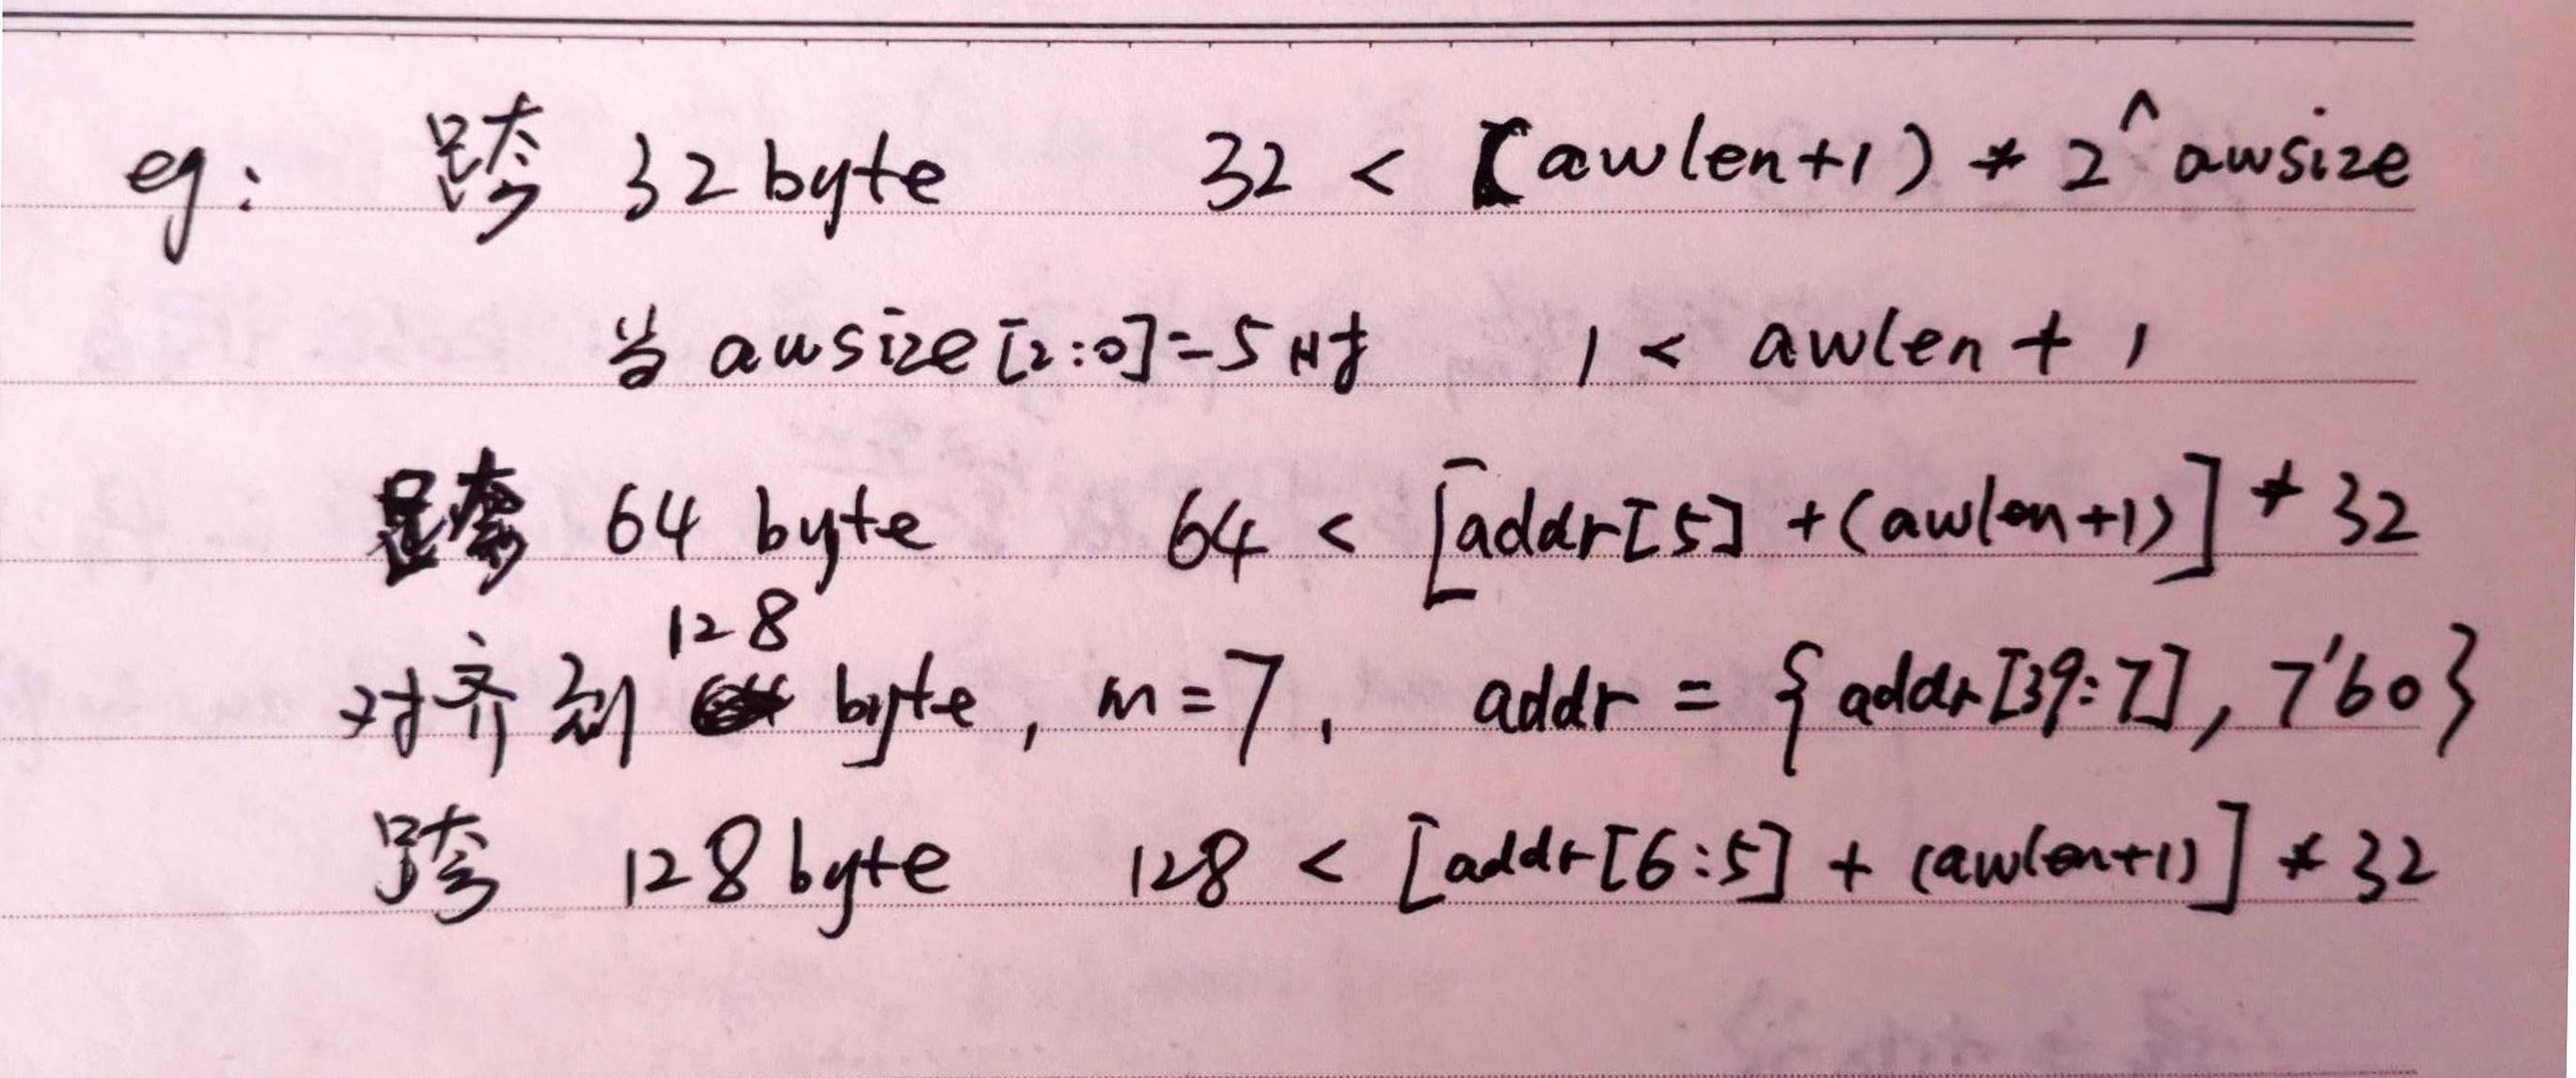 eg: 跨 32 byte 32 < (awlen+1) * 2^awsize
当 awsize[2:0]=5时 1 < awlen + 1
跨 64 byte 64 < [addr[5] + (awlen+1)] * 32
对齐到 128 byte, m=7, addr = {addr[39:7], 7'b0}
跨 128 byte 128 < [addr[6:5] + (awlen+1)] * 32